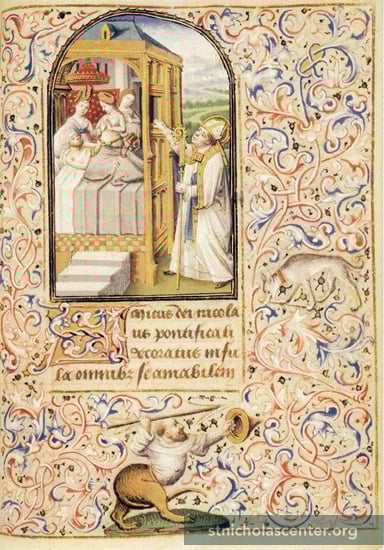 Amicus dei nicola
us pontificali
decoratus infu
la omnibus se amabilem
stnicholascenter.org